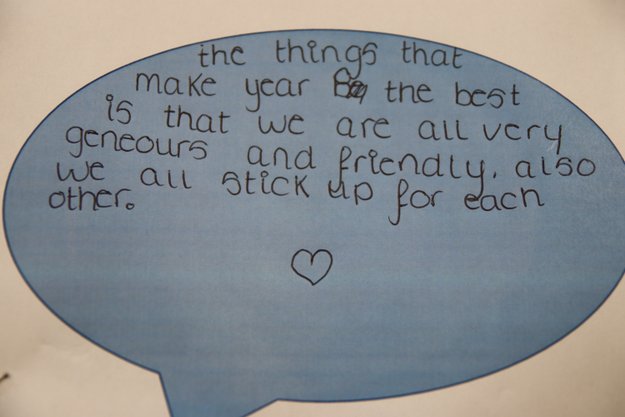 the things that
make year the best
is that we are all very
geneours and friendly. also
we all stick up for each
other.